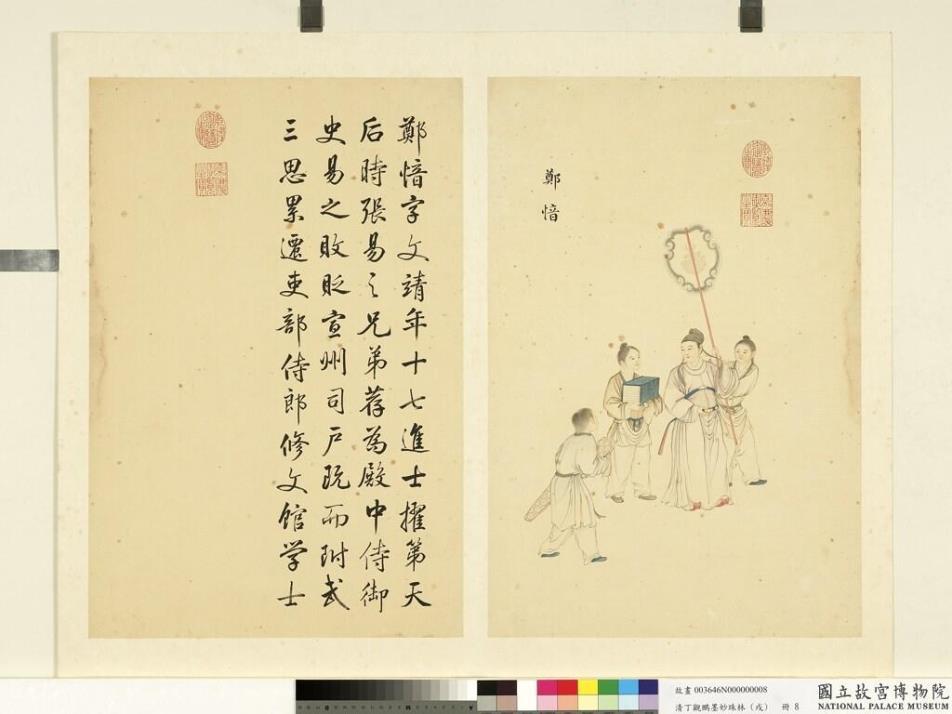 鄭愔
鄭愔字文靖年十七進士擢第天
后時張易之兄弟荐為殿中侍御
史易之敗貶宣州司戶既而附武
三思累遷吏部侍郎修文館学士
故畫 003646N000000008
清丁觀鵬墨妙珠林（戌） 冊 8
國立故宮博物院
NATIONAL PALACE MUSEUM